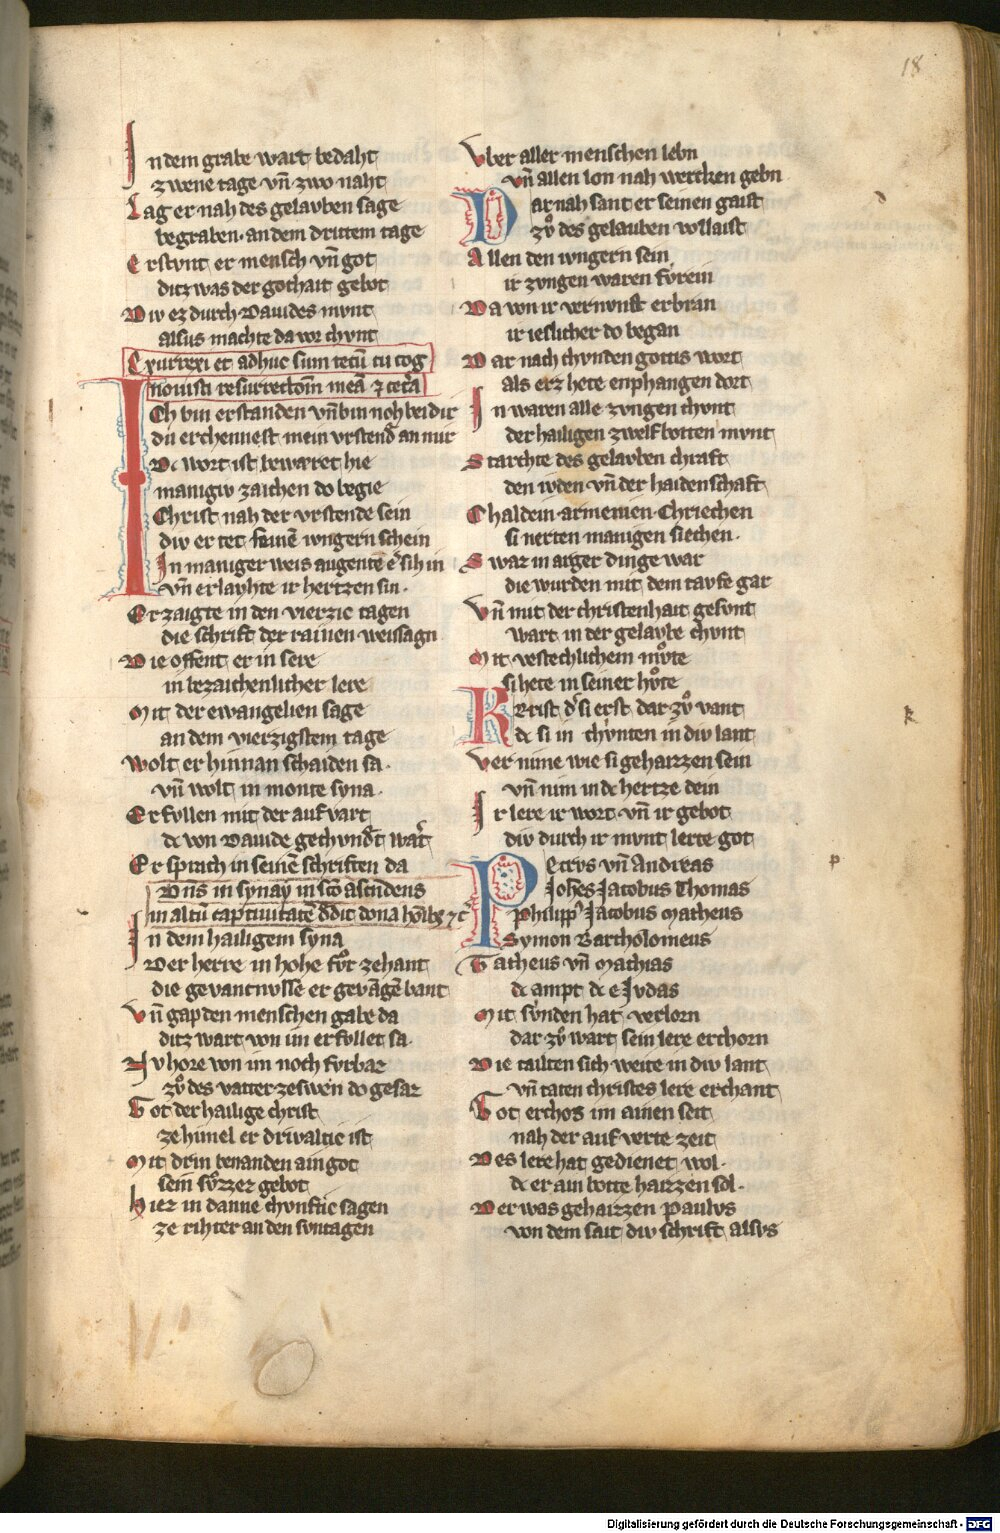 18
In dem grabe wart bedaht
zwene tage vn̄ zwo naht
Lag er nah des gelavben sage
begraben · an dem drittem tage
Erstvnt er mensch vn̄ got
ditz was der gothait gebot
Div ez durch Dauides mvnt
alsus machte da vor chvnt
Exurrexi et adhuc sum tecū tu cog
novisti resurrectōm meā ⁊ cetā
Ich bin erstanden vn̄ bin noh bei dir
du erchennest mein vrstend an mir
Dc wort ist beweret hie
manigiv zaichen do begie
Christ nah der vrstende sein
div er tet seinē ivngern schein
In maniger weis augente er sih in
vn̄ erlavhte ir hertzen sin ·
Er zaigte in den vierzic tagen
die schrift der rainen weissagn
Die offent er in sere
in bezaichenlicher lere
Mit der ewangelien sage
an dem vierzigstem tage
Wolt er hinnan schaiden sa ·
vn̄ wolt in monte syna ·
Erfvllen mit der aufvart
dc von Dauide gechvndet wart
Er sprach in seinē schriften da
Dn̄s in synay in sc̄o ascendens
in altū captiuitatē
In dem hailigem syna
Der herre in hohe fvͦr zehant
die gevancnvsse er gevāgē bant
Vn̄ gap den menschen gabe da
ditz wart von im erfvllet sa ·
Nv hore von im noch fvrbaz
zvͦ des vatter zeswen do gesaz
Got der hailige christ
ze himel er drivaltic ist
Mit drin benanden ain got
sein svͦzzer gebot
Hier in danne chvnftic sagen
ze rihter an den svntagen
Vber aller menschen lebn
vn̄ allen lon nah wercken gebn
Dar nah sant er seinen gaist
zvͦ des gelauben vollaist
Allen den ivngern sein
ir zvngen waren fvrein
Da von ir vernvnst erbran
ir ieslicher do began
Dar nach chvnden gottis wort
als erz hete enphangen dort
In waren alle zvngen chvnt
der hailigen zwelfbotten mvnt
Starchte des gelavben chraft
den ivden vn̄ der haidenschaft
Chaldein · armenien · Chriechen
si nerten manigen siechen ·
Swaz in arger dinge war
die wurden mit dem tavfe gar
Vn̄ mit der christenhait gesvnt
wart in der gelavbe chvnt
Mit vestechlichem mvͦte
si hete in seiner hvͦte
Krist d͛ si erst dar zvͦ vant
k
dc si in chvnten in div lant
Vernime wie si gehaizzen sein
vn̄ nim in dc hertze dein
Ir lere ir wort · vn̄ ir gebot
div durch ir mvnt lerte got
Petrvs vn̄ Andreas
p
Joh̄es Jacobus Thomas
Philipp͛ Jacobus Matheus
Symon Bartholomeus
Tatheus vn̄ Mathias
dc ampt dc e Jvdas
Mit svnden hat verlorn
dar zvͦ wart sein lere erchorn
Die tailten sich weite in div lant
vn̄ taten christes lere erchant
Got erchos im ainen seit
nah der auf verte zeit
Des lere hat gedienet wol ·
dc er ain botte haizzen sol ·
Der was gehaizzen Paulvs
von dem sait div schrift alsvs
Digitalisierung gefördert durch die Deutsche Forschungsgemeinschaft - DFG